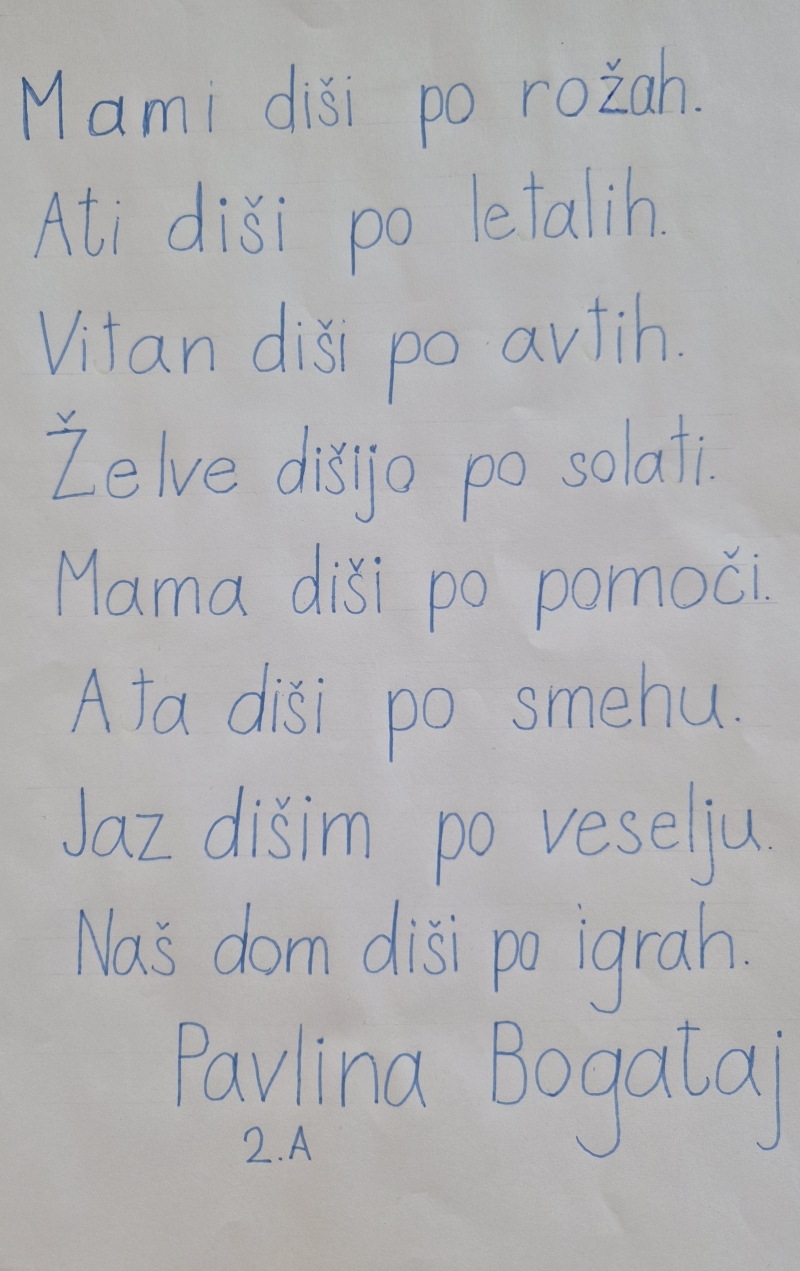 Mami diši po rožah.
Ati diši po letalih.
Vitan diši po avtih.
Želve dišijo po solati.
Mama diši po pomoči.
Ata diši po smehu.
Jaz dišim po veselju.
Naš dom diši po igrah.
Pavlina Bogataj
2.A